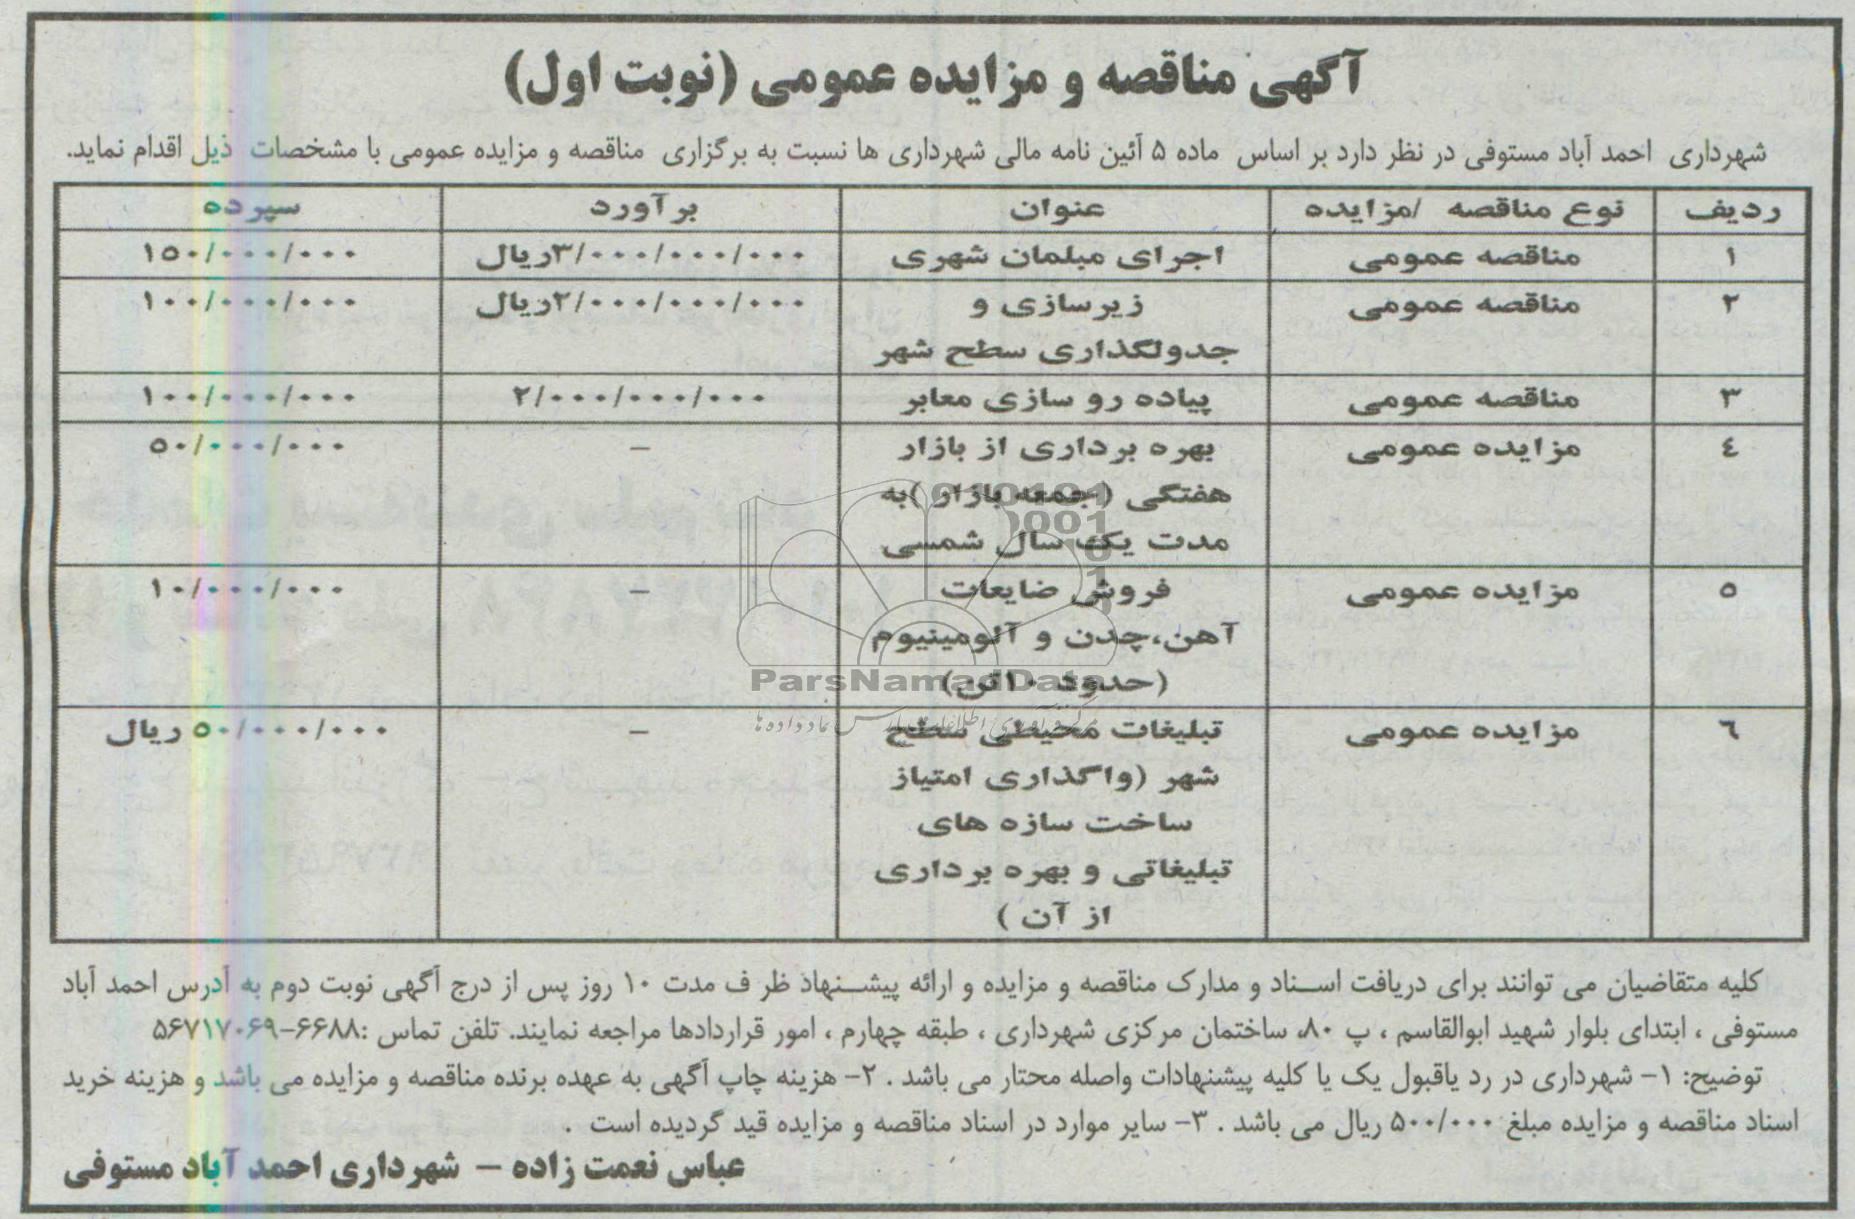 آگهی مناقصه و مزایده عمومی (نوبت اول)
شهرداری احمد آباد مستوفی در نظر دارد بر اساس ماده ۵ آئین نامه مالی شهرداری ها نسبت به برگزاری مناقصه و مزایده عمومی با مشخصات ذیل اقدام نماید.
ردیف نوع مناقصه /مزایده عنوان برآورد سپرده
۱ مناقصه عمومی اجرای مبلمان شهری ۳/۰۰۰/۰۰۰/۰۰۰ریال ۱۵۰/۰۰۰/۰۰۰
۲ مناقصه عمومی زیرسازی و ۲/۰۰۰/۰۰۰/۰۰۰ریال ۱۰۰/۰۰۰/۰۰۰
جدولگذاری سطح شهر
۳ مناقصه عمومی پیاده رو سازی معابر ۲/۰۰۰/۰۰۰/۰۰۰ ۱۰۰/۰۰۰/۰۰۰
٤ مزایده عمومی بهره برداری از بازار – ۵۰/۰۰۰/۰۰۰
هفتگی (جمعه بازار )به
مدت یک سال شمسی
۵ مزایده عمومی فروش ضایعات – ۱۰/۰۰۰/۰۰۰
آهن،چدن و آلومینیوم
(حدود ۱۰تن)
٦ مزایده عمومی تبلیغات محیطی سطح – ۵۰/۰۰۰/۰۰۰ ریال
شهر (واگذاری امتیاز
ساخت سازه های
تبلیغاتی و بهره برداری
از آن )
ParsNamadData
کلیه متقاضیان می توانند برای دریافت اسناد و مدارک مناقصه و مزایده و ارائه پیشنهاد ظر ف مدت ۱۰ روز پس از درج آگهی نوبت دوم به آدرس احمد آباد
مستوفی ، ابتدای بلوار شهید ابوالقاسم ، پ ۸۰، ساختمان مرکزی شهرداری ، طبقه چهارم ، امور قراردادها مراجعه نمایند. تلفن تماس :۶۶۸۸-۵۶۷۱۷۰۶۹
توضیح: ۱- شهرداری در رد یاقبول یک یا کلیه پیشنهادات واصله محتار می باشد . ۲- هزینه چاپ آگهی به عهده برنده مناقصه و مزایده می باشد و هزینه خرید
اسناد مناقصه و مزایده مبلغ ۵۰۰/۰۰۰ ریال می باشد . ۳- سایر موارد در اسناد مناقصه و مزایده قید گردیده است .
عباس نعمت زاده – شهرداری احمد آباد مستوفی